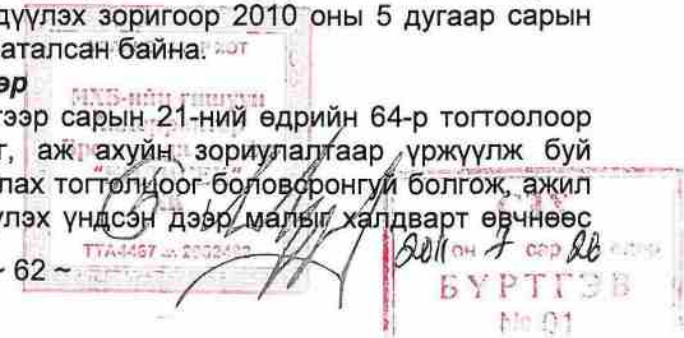 дүүлэх зоригоор 2010 оны 5 дугаар сарын
аталсан байна.
ХОТ
эр
МХБ-ийн гишүүн
гээр сарын 21-ний өдрийн 64-р тогтоолоор
г, аж ахуйн зориулалтаар үржүүлж буй
лах тогтолцоог боловсронгуй болгож, ажил
үлэх үндсэн дээр малыг халдварт өвчнөөс
~ 62 ~
2011 он 7 сар 20
БҮРТГЭВ
№ 01